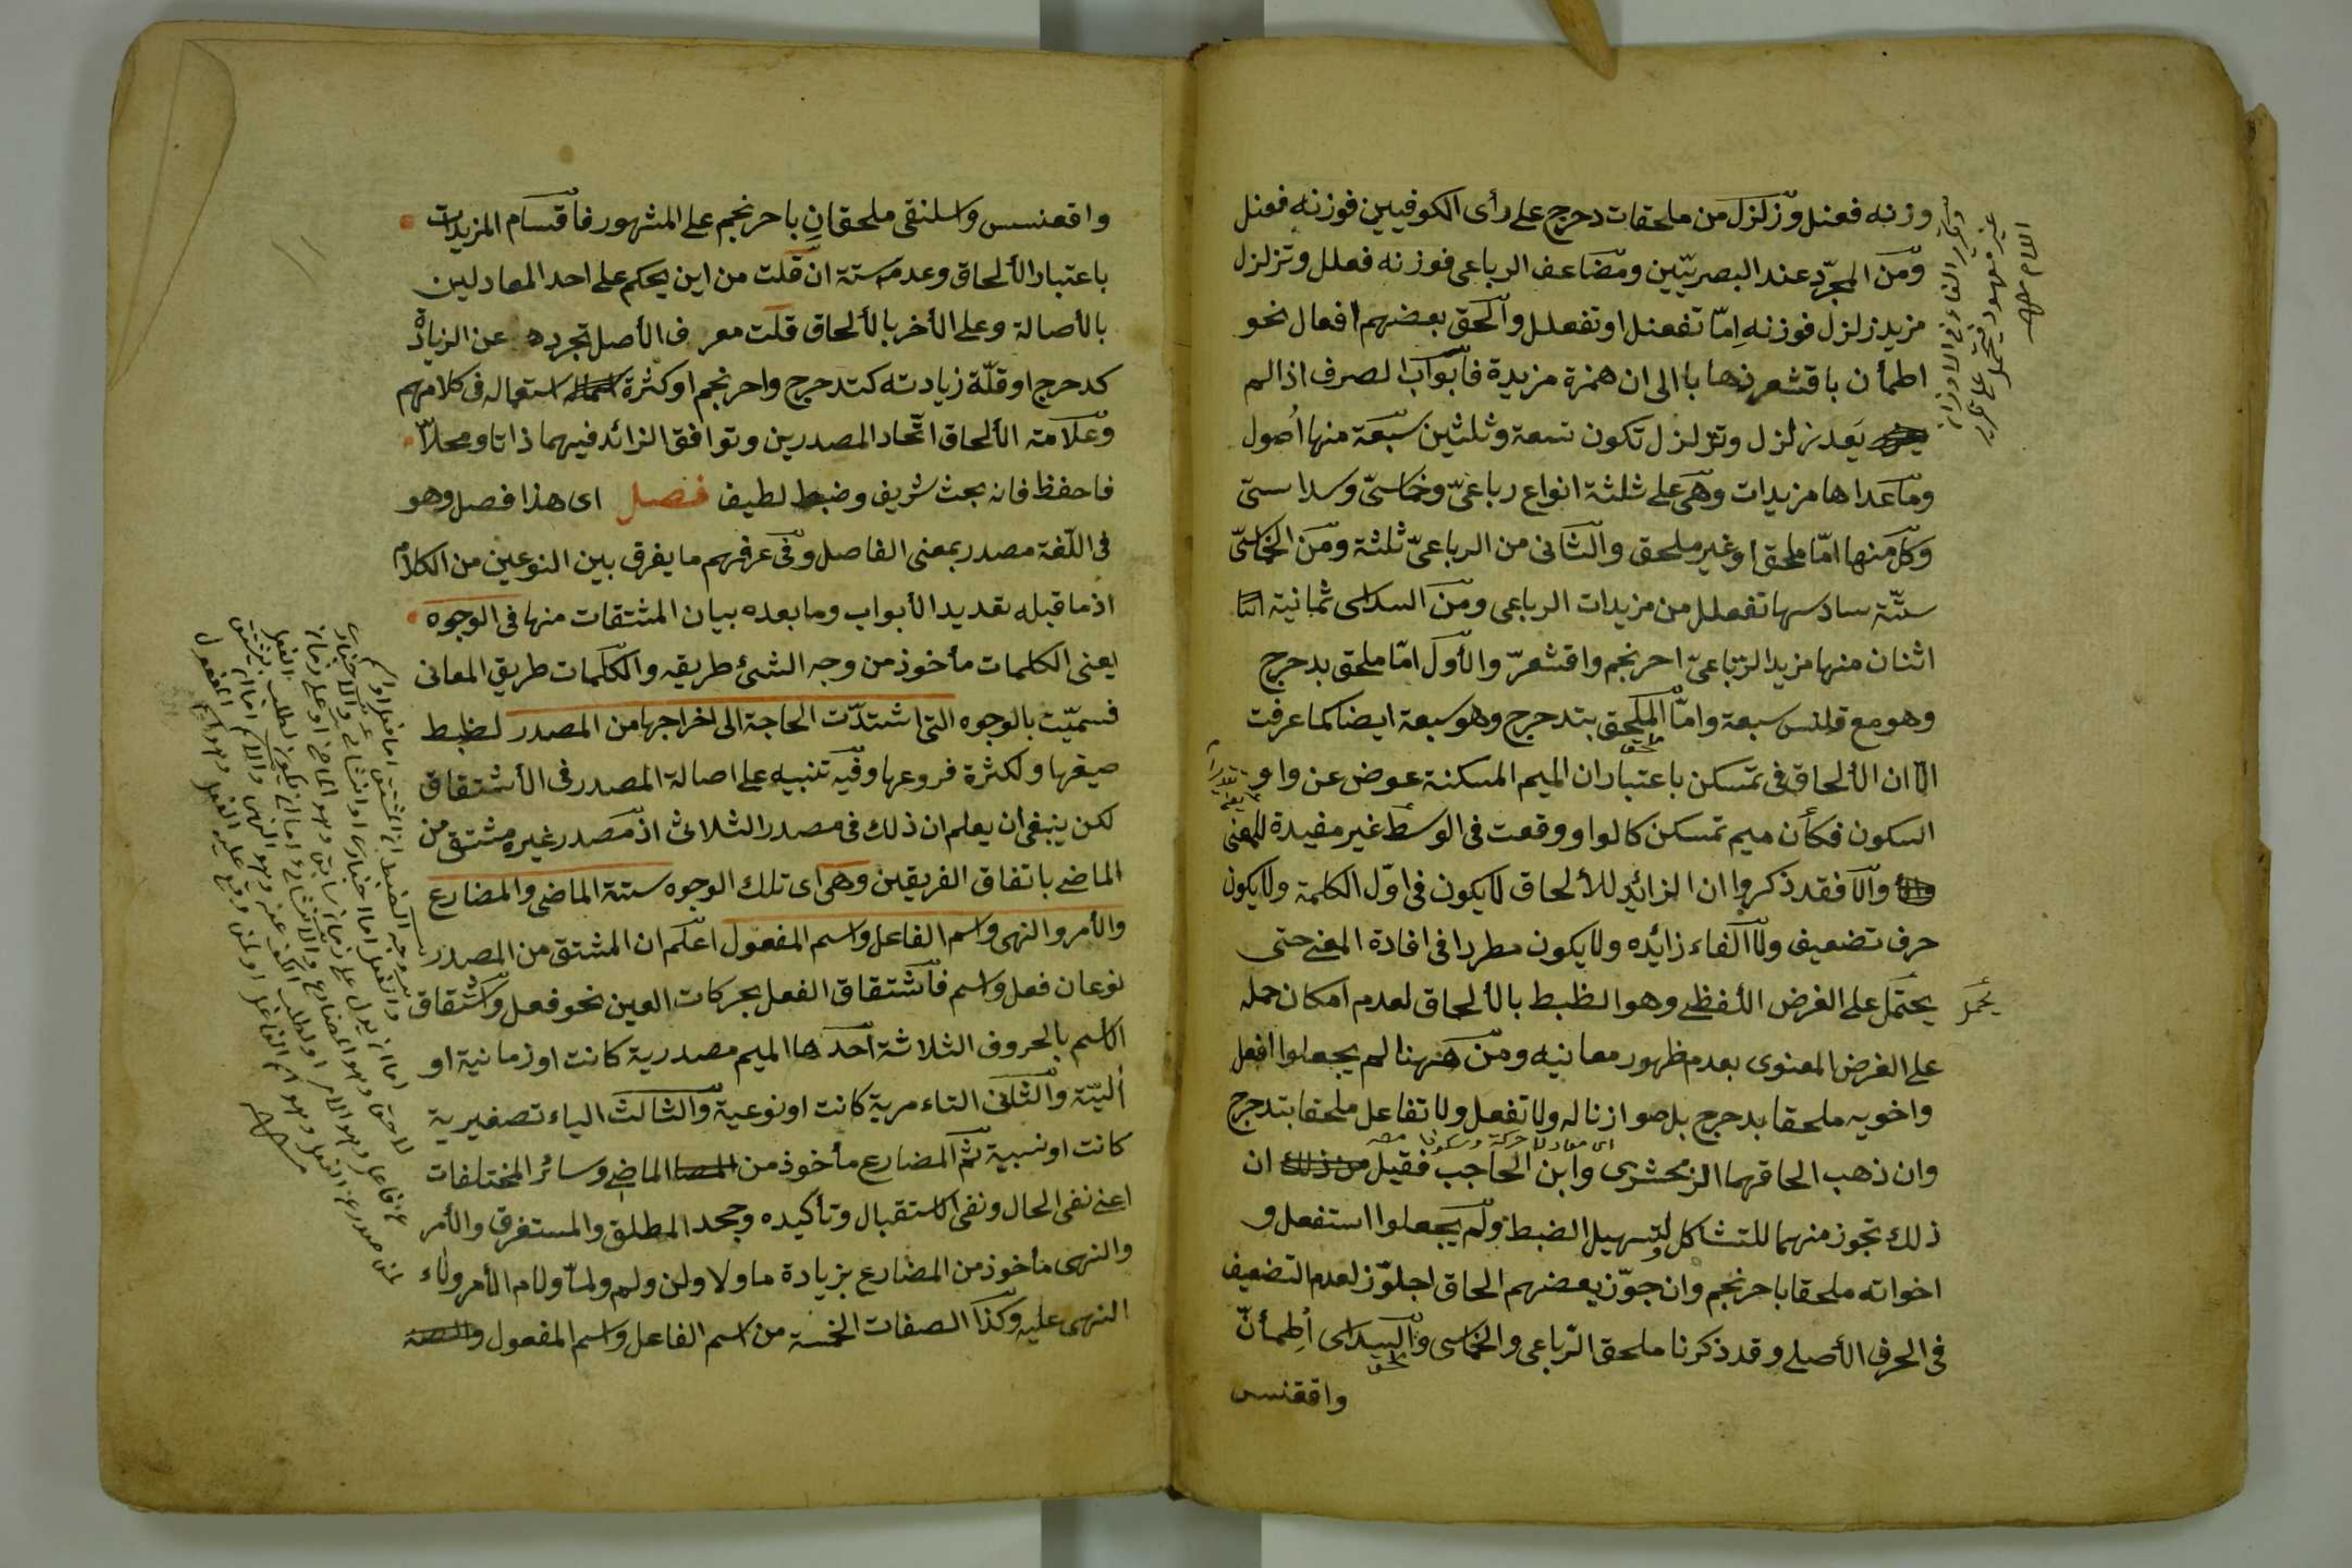 وزنه فعنل وزلزل من ملحقات دحرج على رأى الكوفيين فوزنه فعنل
ومن المجرّد عند البصريّين ومضاعف الرباعى فوزنه فعلل وتزلزل
مزيد زلزل فوزنه امّا تفعنل او تفعلل والحق بعضهم افعال نحو
اطمأن باقشعر ذهابا الى ان همزة مزيدة فابواب الصرف اذا لم
يعد زلزل وتزلزل تكون تسعة وثلثين سبعة منها أصول
وما عداها مزيدات وهى على ثلثة انواع رباعىّ وخماسىّ وسداسىّ
وكل منها امّا ملحق او غير ملحق والثانى من الرباعىّ ثلثة ومن الخماسىّ
ستّة سادسها تفعلل من مزيدات الرباعى ومن السداسى ثمانية
اثنان منها مزيد الرّباعىّ احرنجم واقشعرّ والأول امّا ملحق بدحرج
وهو مع قلنس سبعة وامّا الملحق بتدحرج وهو سبعة ايضا كما عرفت
الّا ان الألحاق فى تمسكن باعتبار ان الميم المسكنة عوض عن واو
السكون فكأن ميم تمسكن كالواو ووقعت فى الوسط غير مفيدة للمعنى
والّا فقد ذكروا ان الزائد للألحاق لا يكون فى اوّل الكلمة ولا يكون
حرف تضعيف ولا الفاء زائده ولا يكون مطردا فى افادة المعنى حتى
يحتمل على الغرض اللفظى وهو الظبط بالألحاق لعدم امكان حمله
يحمل
على الغرض المعنوى بعدم ظهور معانيه ومن هنا لم يجعلوا افعل
واخويه ملحقا بدحرج بل موازنا له ولا تفعل ولا تفاعل ملحقا بتدحرج
اى معادلا حركة وسكونا
وان ذهب الحاقهما الزمخشرى وابن الحاجب فقيل ان
ذلك تجوز منهما للتشاكل لتسهيل الضبط ولم يجعلوا استفعل و
اخواته ملحقا باحرنجم وان جوّز بعضهم الحاق اجلوّز لعدم التضعيف
فى الحرف الأصلى وقد ذكرنا ملحق الرّباعى والخماسى والسداسى أطمأنّ
واقعنسس
واقعنسس واسلنقى ملحقان باحرنجم على المشهور فاقسام المزيدات
باعتبار الألحاق وعدمه ستة ان قلت من اين يحكم على احد المعادلين
بالأصالة وعلى الأخر بالألحاق قلت معرف الأصل تجرده عن الزيادة
كدحرج او قلّة زيادته كتدحرج واحرنجم او كثرة استعماله فى كلامهم
وعلامة الألحاق اتّحاد المصدرين وتوافق الزائد فيهما ذاتا ومحلا
فاحفظ فانه بحث شريف وضبط لطيف فصل اى هذا فصل وهو
فى اللّغة مصدر بمعنى الفاصل وفى عرفهم ما يفرق بين النوعين من الكلام
اذ ما قبله تعديد الأبواب وما بعده بيان المشتقات منها فى الوجوه
يعنى الكلمات مأخوذ من وجه الشئ طريقه والكلمات طريق المعانى
فسميّت بالوجوه التى اشتدّت الحاجة الى اخراجها من المصدر لظبط
صيغها ولكثرة فروعها وفيه تنبيه على اصالة المصدر فى الأشتقاق
لكن ينبغى ان يعلم ان ذلك فى مصدر الثلاثى اذ مصدر غيره مشتق من
الماضى باتفاق الفريقين وهى اى تلك الوجوه ستة الماضى والمضارع
والأمر والنهى واسم الفاعل واسم المفعول اعلم ان المشتق من المصدر
نوعان فعل واسم فاشتقاق الفعل بحركات العين نحو فعل واشتقاق
الاسم بالحروف الثلاثة احدها الميم مصدرية كانت او زمانية او
أليّة والثانى التاء مرية كانت او نوعية والثالث الياء تصغيرية
كانت او نسبية ثم المضارع مأخوذ من الماضى وسائر المختلفات
اعنى نفى الحال ونفى الاستقبال وتأكيده وجحد المطلق والمستغرق والأمر
والنهى مأخوذ من المضارع بزيادة ما ولا ولن ولم ولمّا ولام الأمر ولاء
النهى عليه وكذا الصفات الخمسة من اسم الفاعل واسم المفعول والصفة